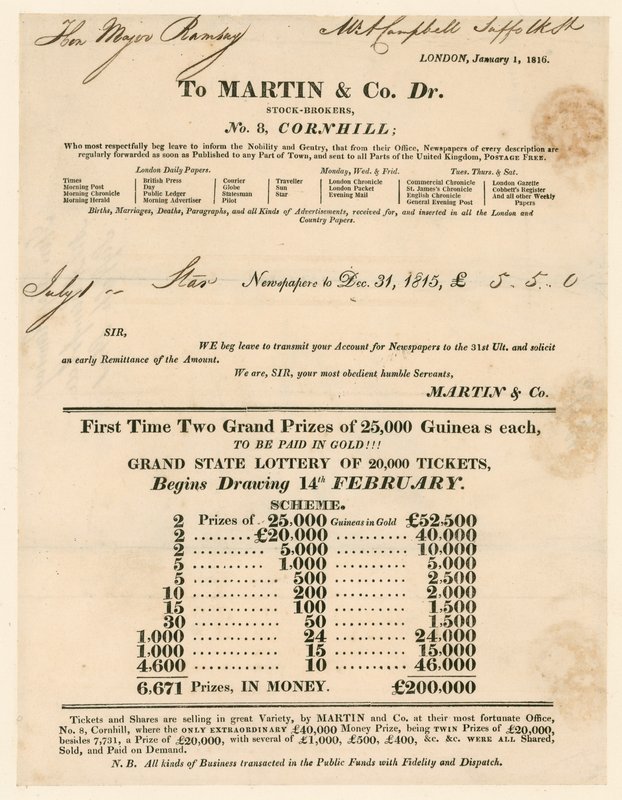 Hon Major Ramsay Mr A Campbell Suffolk St
LONDON, January 1, 1816.
To MARTIN & Co. Dr.
STOCK-BROKERS,
No. 8, CORNHILL;
Who most respectfully beg leave to inform the Nobility and Gentry, that from their Office, Newspapers of every description are
regularly forwarded as soon as Published to any Part of Town, and sent to all Parts of the United Kingdom, POSTAGE FREE.
London Daily Papers. Monday, Wed. & Frid. Tues. Thurs. & Sat.
Times British Press Courier Traveller London Chronicle Commercial Chronicle London Gazette
Morning Post Day Globe Sun London Packet St. James's Chronicle Cobbett's Register
Morning Chronicle Public Ledger Statesman Star Evening Mail English Chronicle And all other Weekly
Morning Herald Morning Advertiser Pilot General Evening Post Papers
Births, Marriages, Deaths, Paragraphs, and all Kinds of Advertisements, received for, and inserted in all the London and
Country Papers.
July 1 -- Star Newspapers to Dec. 31, 1815, £ 5. 5. 0
SIR,
WE beg leave to transmit your Account for Newspapers to the 31st Ult. and solicit
an early Remittance of the Amount.
We are, SIR, your most obedient humble Servants,
MARTIN & Co.
First Time Two Grand Prizes of 25,000 Guineas each,
TO BE PAID IN GOLD!!!
GRAND STATE LOTTERY OF 20,000 TICKETS,
Begins Drawing 14th FEBRUARY.
SCHEME.
2 Prizes of 25,000 Guineas in Gold £52,500
2 ........ £20,000 .......... 40,000
2 ............ 5,000 .......... 10,000
5 ............ 1,000 .......... 5,000
5 ............ 500 .......... 2,500
10 ............ 200 .......... 2,000
15 ............ 100 .......... 1,500
30 ............ 50 .......... 1,500
1,000 ............ 24 .......... 24,000
1,000 ............ 15 .......... 15,000
4,600 ............ 10 .......... 46,000
6,671 Prizes, IN MONEY. £200,000
Tickets and Shares are selling in great Variety, by MARTIN and Co. at their most fortunate Office,
No. 8, Cornhill, where the ONLY EXTRAORDINARY £40,000 Money Prize, being TWIN Prizes of £20,000,
besides 7,731, a Prize of £20,000, with several of £1,000, £500, £400, &c. &c. WERE ALL Shared,
Sold, and Paid on Demand.
N. B. All kinds of Business transacted in the Public Funds with Fidelity and Dispatch.